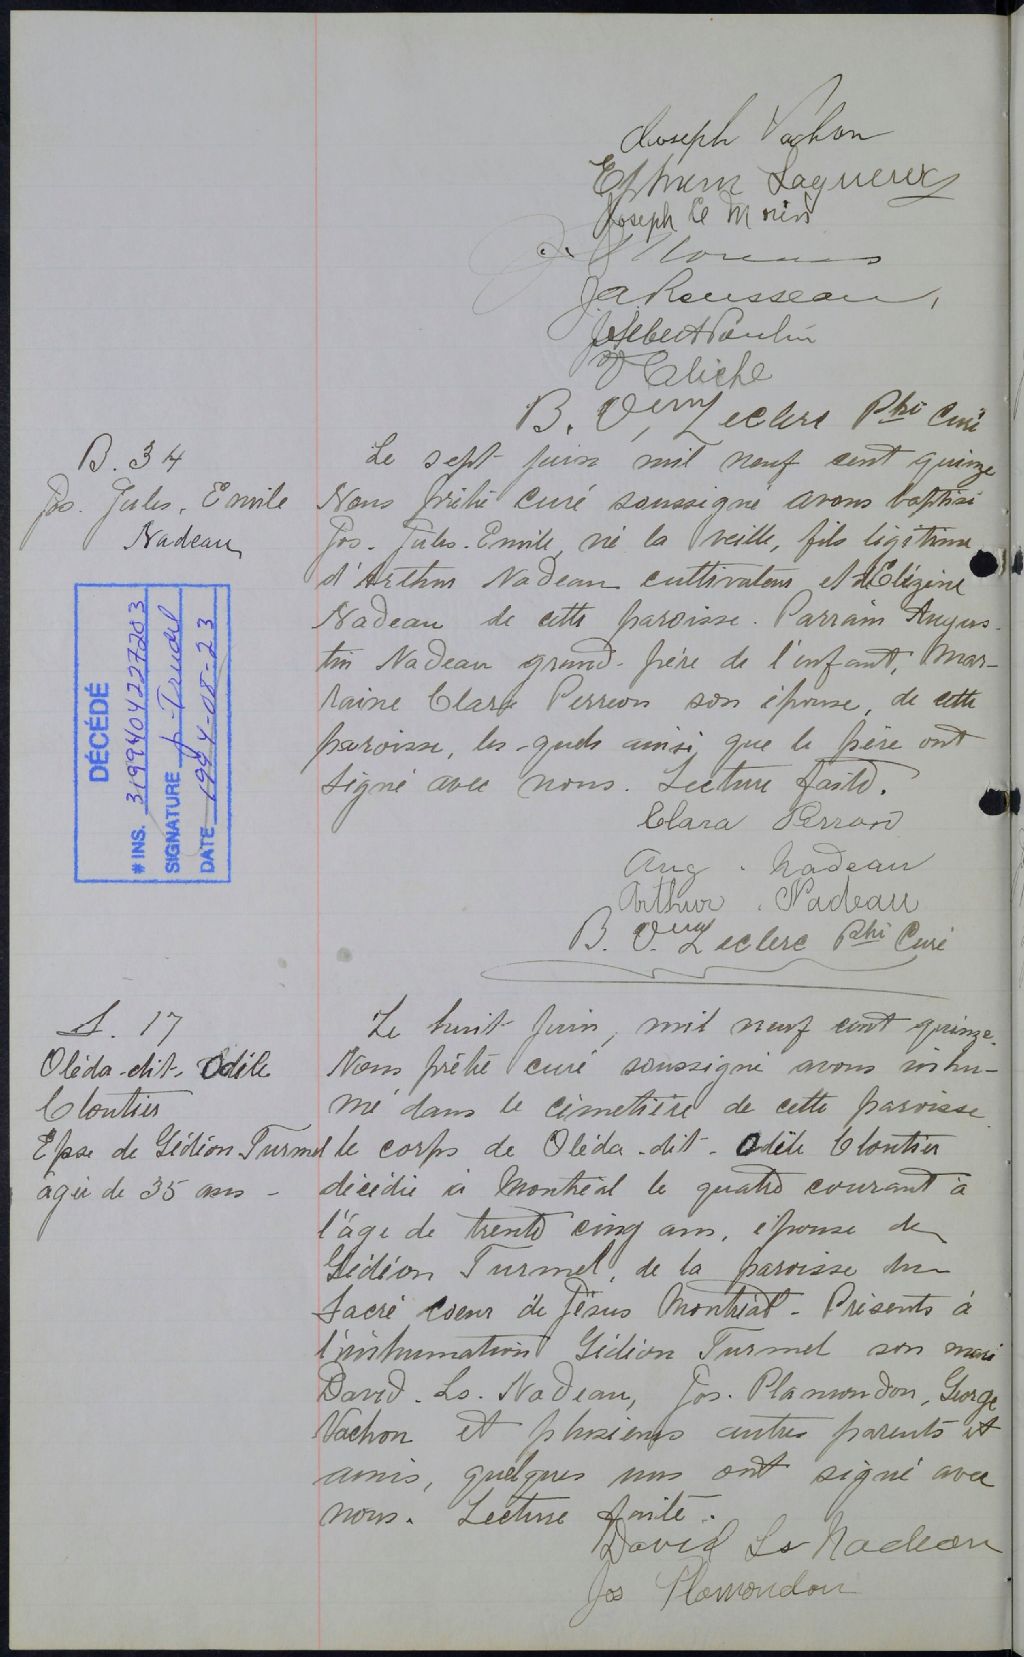 Joseph Vachon
Ephrem Lagueux
Joseph Le Morin
J.A. Rousseau,
Jos Hebert Poulin
V Cliche
B. Vny Leclerc Ptre Curé
B. 34
Jos. Jules. Emile
Nadeau
Le sept juin mil neuf cent quinze
Nous prêtre curé soussigné avons baptisé
Jos. Jules. Emile, né la veille, fils légitime
d'Arthur Nadeau cultivateur et d'Elézine
Nadeau de cette paroisse. Parrain Augus-
tin Nadeau grand-père de l'enfant, Mar-
raine Clara Perreon son épouse, de cette
paroisse, les-quels ainsi que le père ont
signé avec nous. Lecture faite.
DÉCÉDÉ
# INS. 3199404227203
SIGNATURE J. Trudel
DATE 1994-08-23
Clara Perron
Aug. Nadeau
Arthur. Nadeau
B. Vny Leclerc Ptre Curé
S. 17
Oléda-dit-Odile
Cloutier
Epse de Gédéon Turmel
agée de 35 ans -
Le huit juin, mil neuf cent quinze.
Nous prêtre curé soussigné avons inhu-
mé dans le cimetière de cette paroisse
le corps de Oléda-dit-Odile Cloutier
décédée à Montréal le quatre courant à
l'âge de trente cinq ans, épouse de
Gédéon Turmel, de la paroisse du
Sacré coeur de Jésus Montréal - Présents à
l'inhumation Gédéon Turmel son mari
David. Ls. Nadeau, Jos. Plamondon, George
Vachon et plusieurs autres parents et
amis, quelques uns ont signé avec
nous. Lecture faite.
David Ls Nadeau
Jos Plamondon